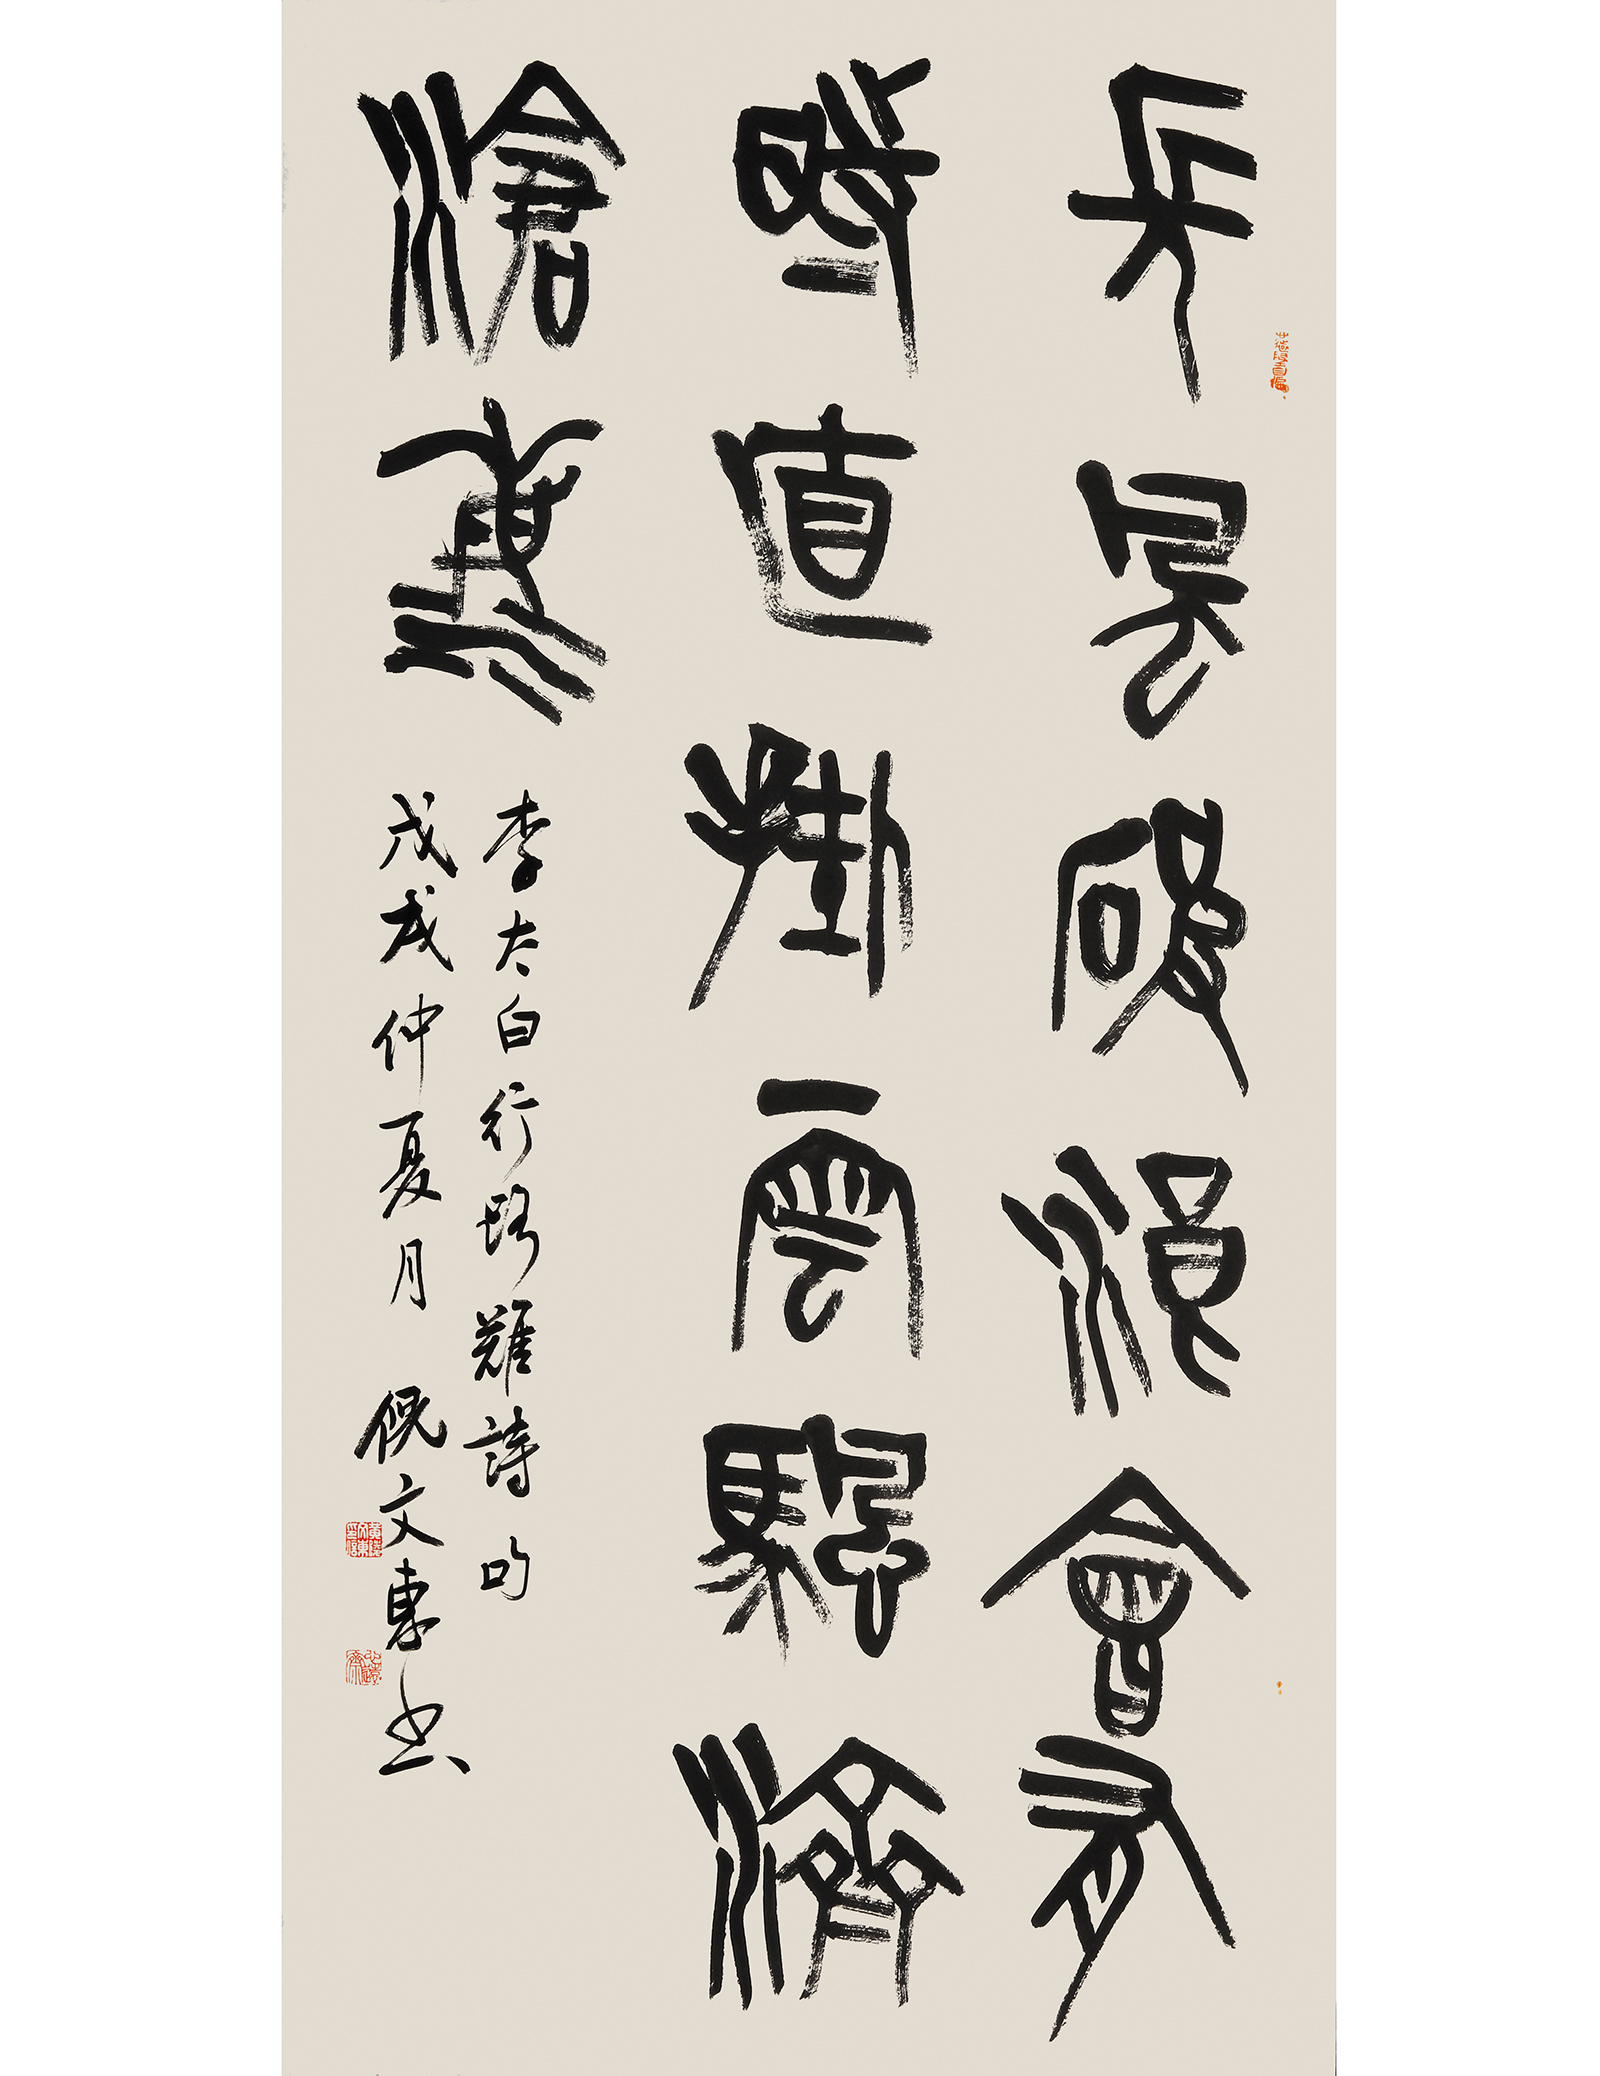 長風破浪會有
時直掛雲驅濟
滄海
李太白行路難詩句
戊戌仲夏月 倪文東书